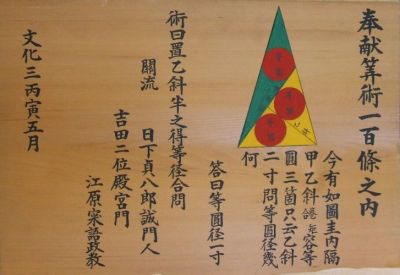 奉献筭術一百條之内
今有如圖圭内隔
甲乙斜容等
圓三箇只云乙斜
二寸問等圓径幾
何
答曰等圓径一寸
術曰置乙斜半之得等径合問
關流
日下貞八郎誠門人
吉田二位殿宮門
江原寀語政教
文化三丙寅五月
等圓
等圓
等圓
乙斜